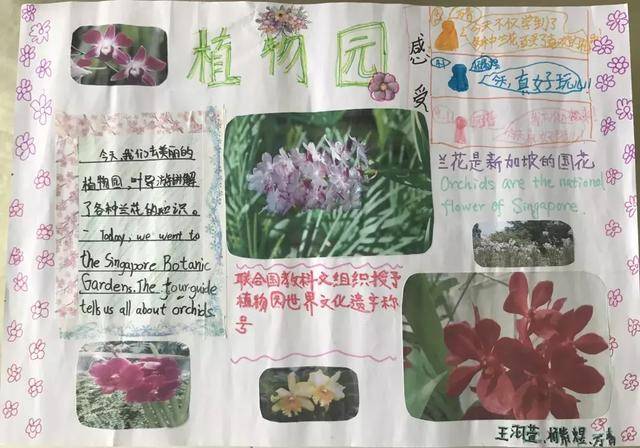 植物园
感受
今天不仅学到了
今天真好玩儿
今天,我们去美丽的
植物园,叶导游讲解
了各种兰花的知识。
Today, we went to
the Singapore Botanic
Gardens. The tour guide
tells us all about orchids.
兰花是新加坡的国花
Orchids are the national
flower of Singapore.
联合国教科文组织授予
植物园世界文化遗产称
号
王羽萱